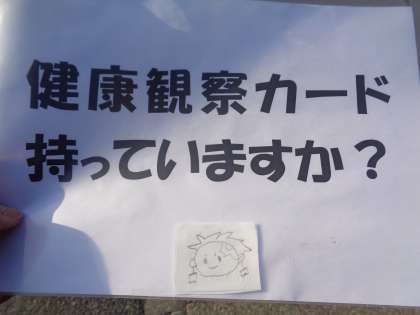 健康観察カード
持っていますか？